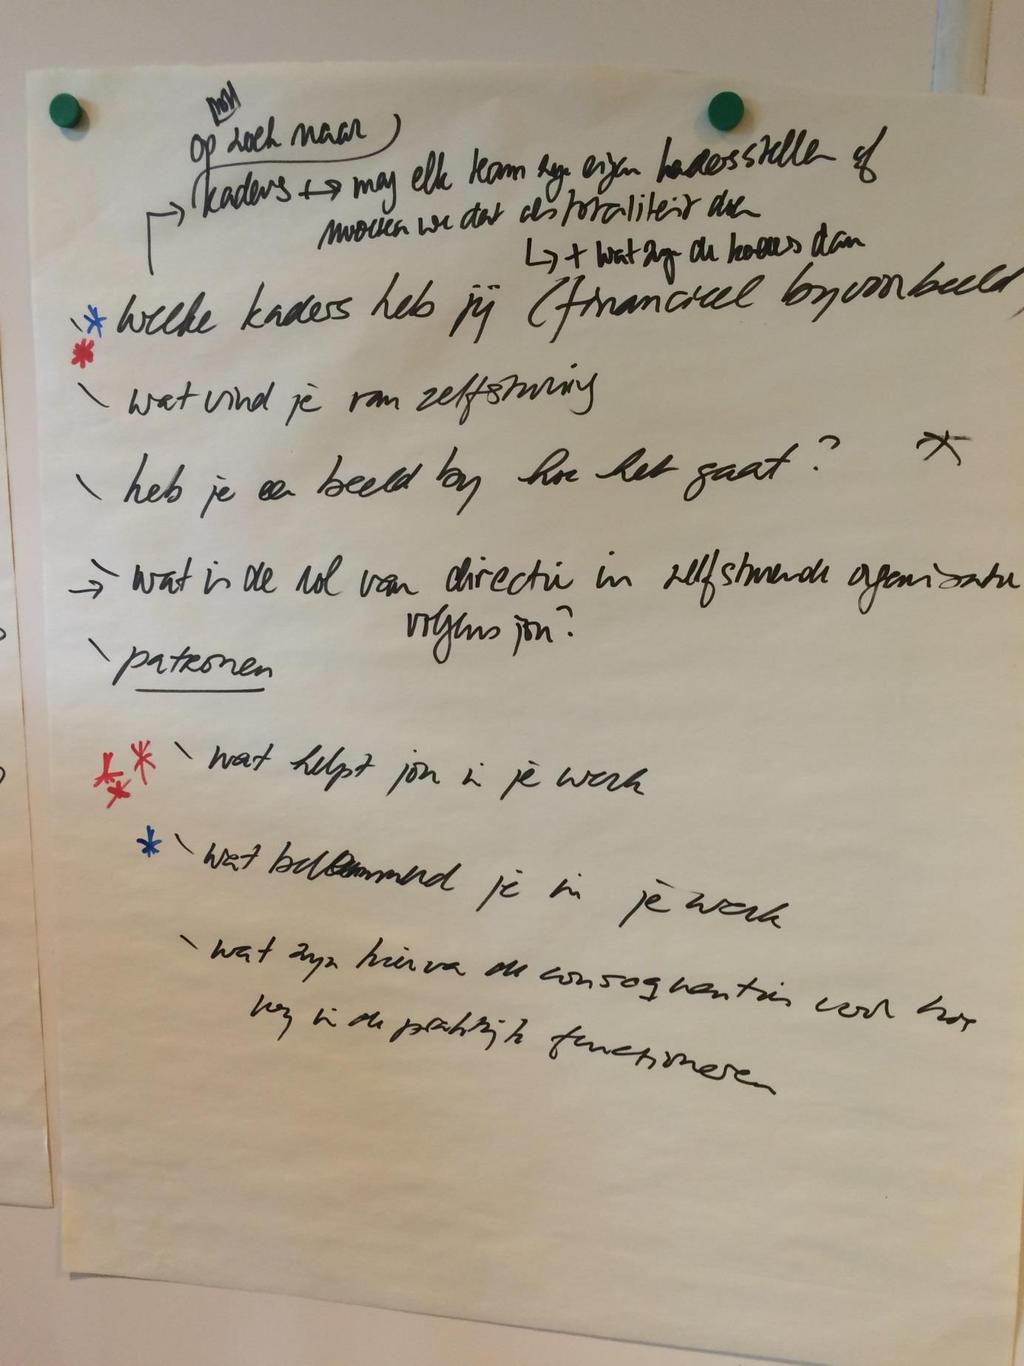 op zoek naar
kaders mag elk team zijn eigen kaders stellen of
moeten we dat als totaliteit doen
+ wat zijn de kaders dan
welke kaders heb jij (financieel bijvoorbeeld)
wat vind je van zelfsturing
heb je een beeld bij hoe het gaat?
wat is de rol van directie in zelfsturende organisatie
volgens jou?
patronen
wat helpt jou in je werk
wat belemmerd je in je werk
wat zijn hierva de consequenties voor hoe
wij in de praktijk functioneren